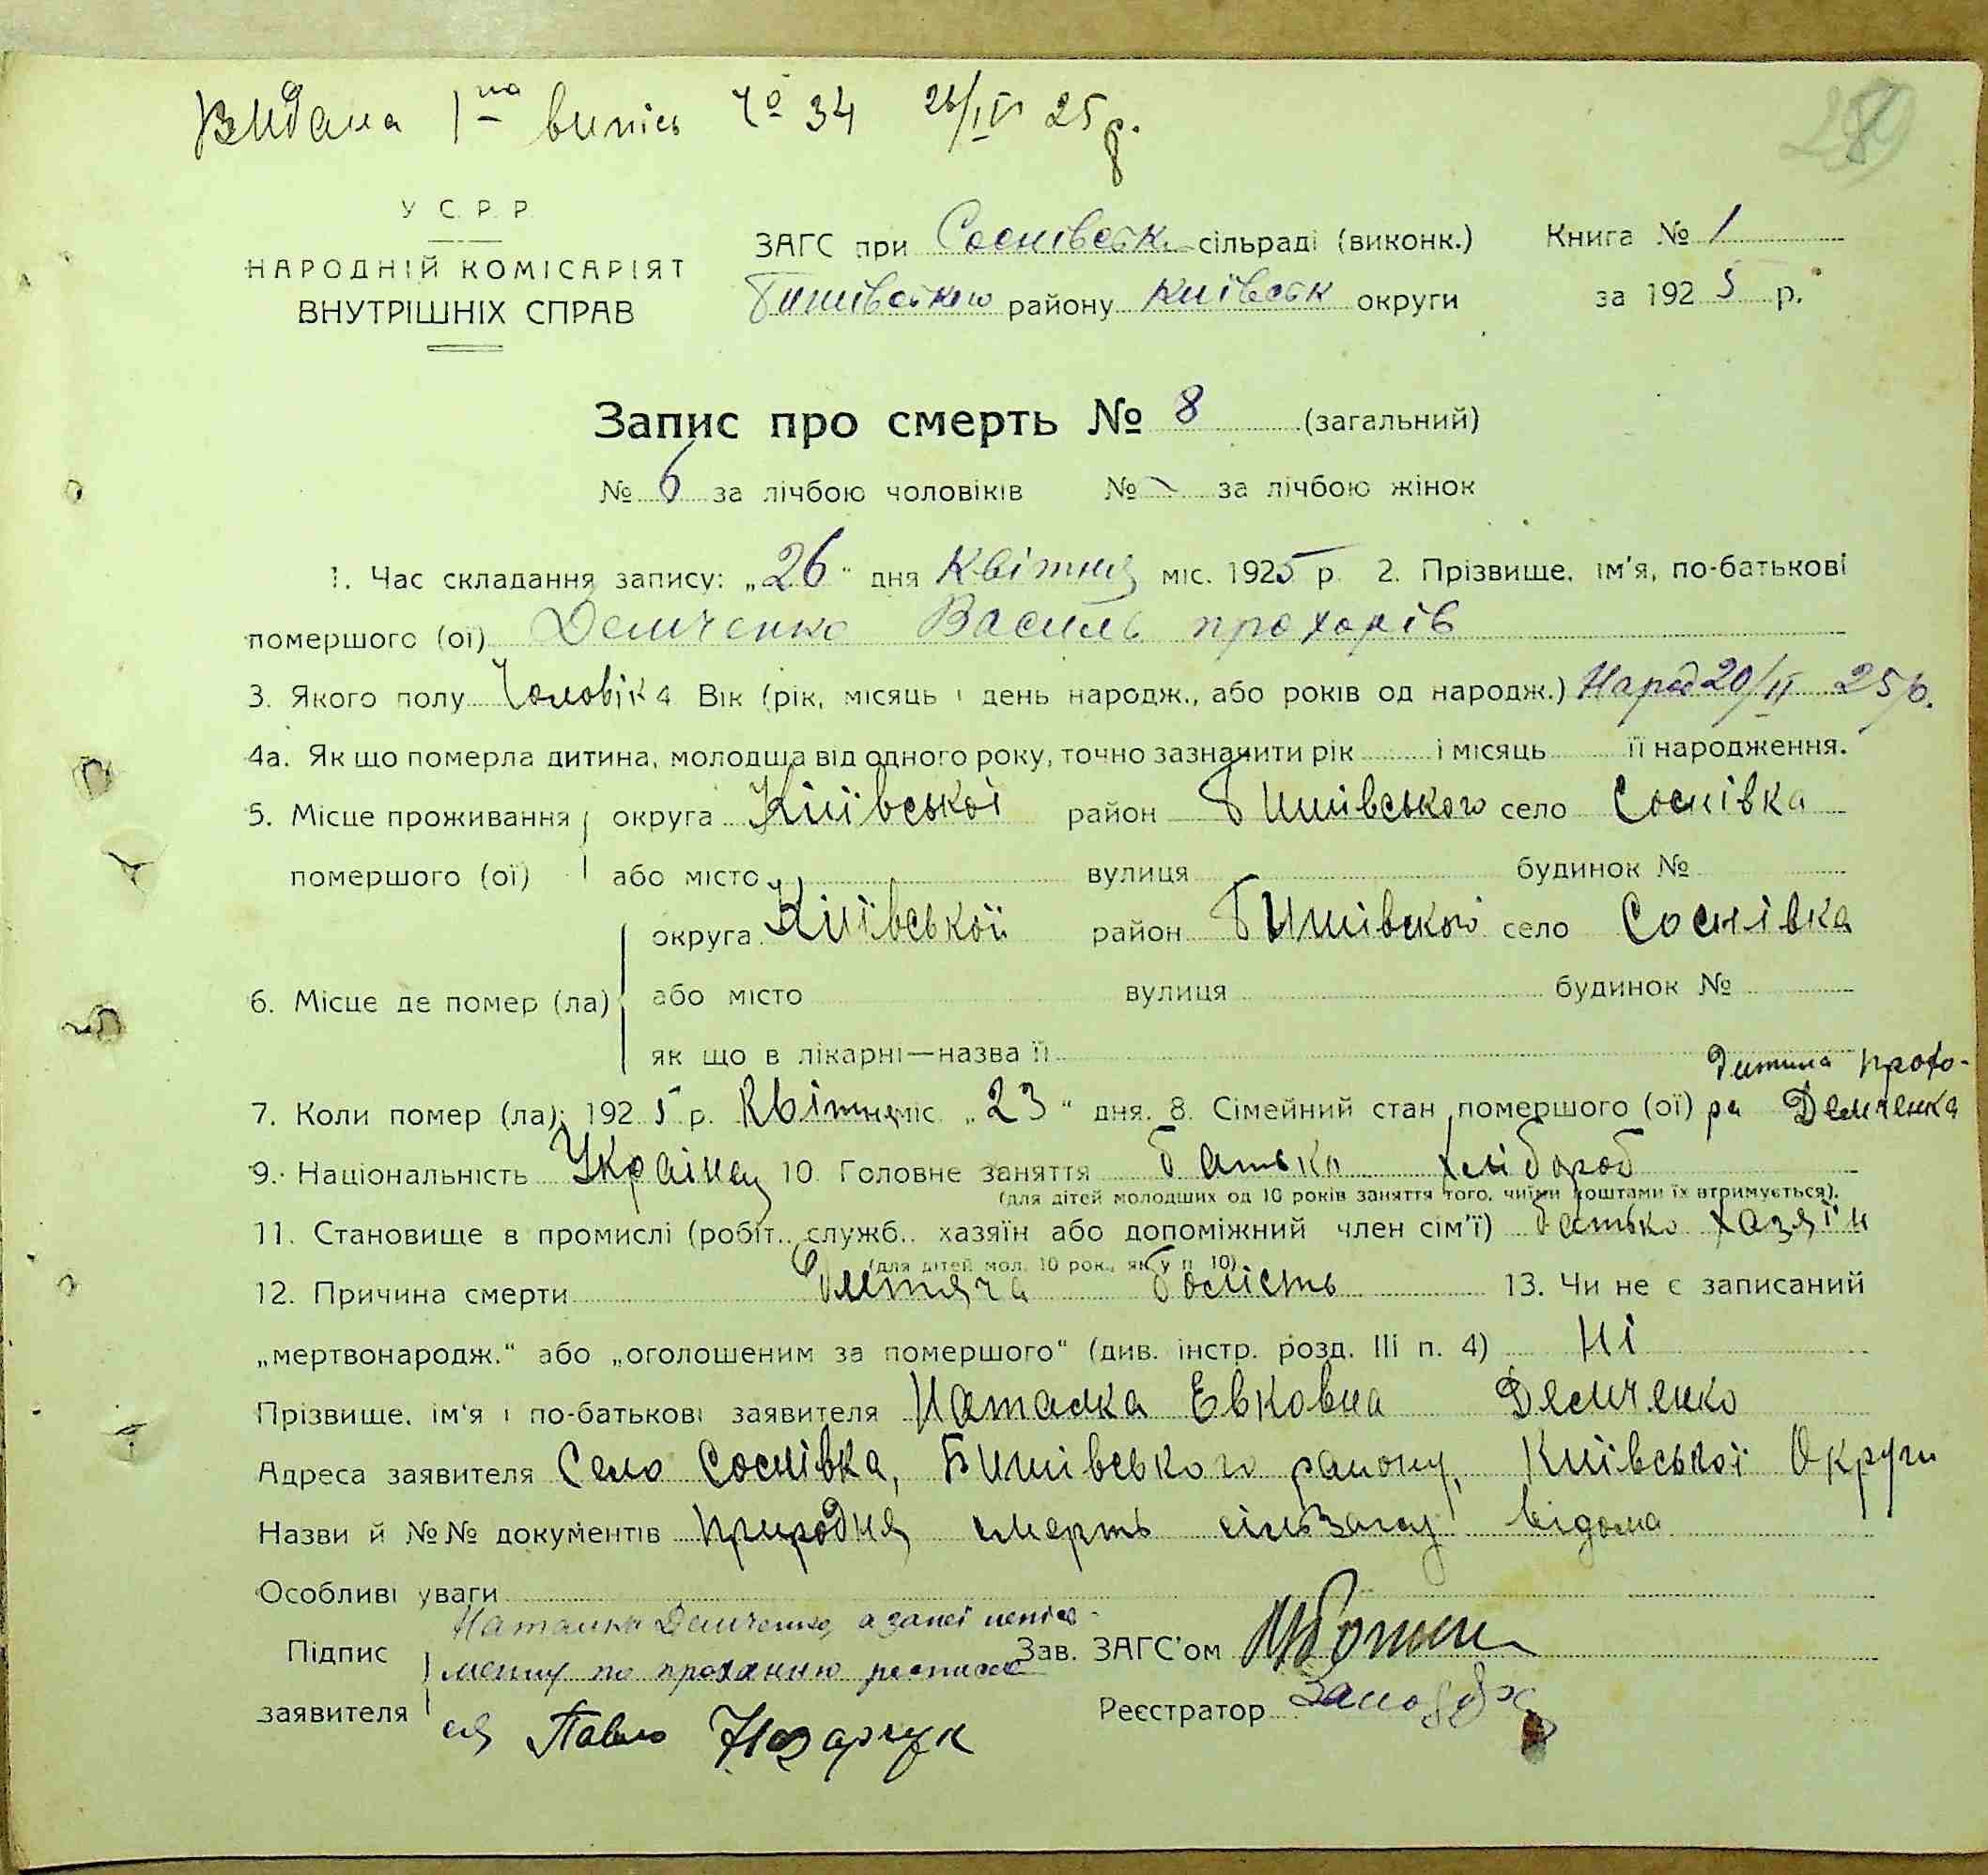 Видана 1-ша випись № 34 26/IV 25 р.
У С. Р. Р.
НАРОДНІЙ КОМІСАРІЯТ
ВНУТРІШНІХ СПРАВ
ЗАГС при Соснівськ. сільраді (виконк.)
Бишівського району Київськ округи
Книга № 1
за 1925 р.
Запис про смерть № 8 (загальний)
№ 6 за лічбою чоловіків № за лічбою жінок
1. Час складання запису: „26“ дня Квітня міс. 1925 р. 2. Прізвище, ім'я, по-батькові
помершого (ої) Демченко Василь прохорів
3. Якого полу Чоловік 4 Вік (рік, місяць і день народж., або років од народж.) Народ 20/II 25 р.
4а. Як що померла дитина, молодша від одного року, точно зазначити рік і місяць її народження.
5. Місце проживання округа Київської район Бишівського село Соснівка
помершого (ої) або місто вулиця будинок №
округа Київської район Бишівского село Соснівка
6. Місце де помер (ла) або місто вулиця будинок №
як що в лікарні—назва її
Дитина прохо-
7. Коли помер (ла): 1925 р. Квітня міс. „23“ дня. 8. Сімейний стан помершого (ої) ра Демченка
9. Національність Українец 10. Головне заняття батька хлібороб
(для дітей молодших од 10 років заняття того, чиїми коштами їх втримується).
11. Становище в промислі (робіт., служб., хазяїн або допоміжний член сім'ї) батько хазяїн
(для дітей мол. 10 рок., як у п. 10)
12. Причина смерти Дитяча болість 13. Чи не є записаний
„мертвонародж.“ або „оголошеним за помершого“ (див. інстр. розд. III п. 4) Ні
Прізвище, ім'я і по-батькові заявителя Наталка Евковна Демченко
Адреса заявителя Село Соснівка, Бишівського району, Київської Округи
Назви й №№ документів природня смерть сільзагсу відома
Особливі уваги
Наталка Демченко, а за неї непись-
Підпис менну по проханню росписався
заявителя Павло Назарчук
Зав. ЗАГС'ом
Реєстратор